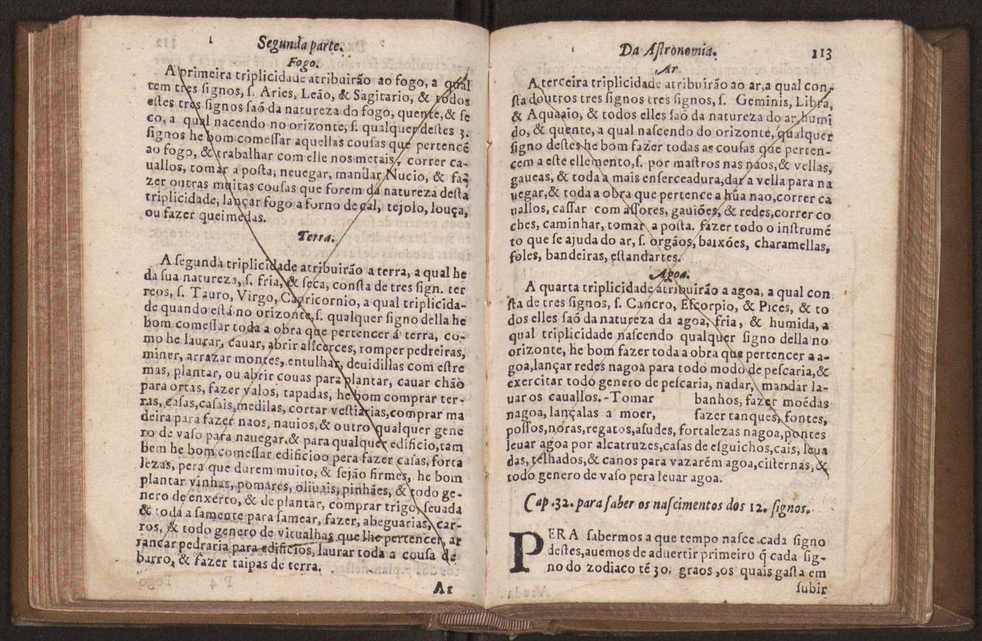 Segunda parte.
Fogo.
A primeira triplicidade atribuirão ao fogo, a qual
tem tres signos, ſ. Aries, Leão, & Sagitario, & todos
estes tres signos saõ da natureza do fogo, quente, & se
co, a qual nacendo no orizonte, ſ. qualquer destes 3.
signos he bom comessar aquellas cousas que pertencẽ
ao fogo, & trabalhar com elle nos metais, correr ca-
uallos, tomar a posta, neuegar, mandar Nucio, & fa-
zer outras muitas cousas que forem da natureza desta
triplicidade, lançar fogo a forno de cal, tejolo, louça,
ou fazer queimedas.
Terra.
A segunda triplicidade atribuirão a terra, a qual he
da sua natureza, ſ. fria, & seca, consta de tres sign. ter
reos, ſ. Tauro, Virgo, Capricornio, a qual triplicida-
de quando está no orizonte, ſ. qualquer signo della he
bom comessar toda a obra que pertencer á terra, co-
mo he laurar, cauar, abrir alicerces, romper pedreiras,
miner, arrazar montes, entulhar, deuidillas com estre
mas, plantar, ou abrir couas para plantar, cauar chão
para ortas, fazer valos, tapadas, he bom comprar ter-
ras, casas, casais, medilas, cortar vestiarias, comprar ma
deira para fazer naos, nauios, & outro qualquer gene
ro de vaso para nauegar, & para qualquer edificio, tam
bem he bom comessar edificioo pera fazer casas, forta
lezas, pera que durem muito, & sejão firmes, he bom
plantar vinhas, pomares, oliuais, pinhães, & todo ge-
nero de enxerto, & de plantar, comprar trigo, seuada
& toda a samente para samear, fazer, abeguarias, car-
ros, & todo genero de vitualhas que lhe pertencer, ar
rancar pedraria para edificios, laurar toda a cousa de
barro, & fazer taipas de terra.
Ar
Da Astronomia. 113
Ar
A terceira triplicidade atribuirão ao ar, a qual con-
sta doutros tres signos tres signos, ſ. Geminis, Libra,
& Aquario, & todos elles saõ da natureza do ar, humi
do, & quente, a qual nascendo do orizonte, qualquer
signo destes he bom fazer todas as cousas que perten-
cem a este ellemento, ſ. por mastros nas náos, & vellas,
gaueas, & toda a mais enserceadura, dar a vella para na
uegar, & toda a obra que pertence a hũa nao, correr ca
uallos, cassar com assores, gauiões, & redes, correr co
ches, caminhar, tomar a posta. fazer todo o instrumẽ
to que se ajuda do ar, ſ. orgãos, baixões, charamellas,
foles, bandeiras, estandartes.
Agoa.
A quarta triplicidade atribuirão a agoa, a qual con
sta de tres signos, ſ. Cancro, Escorpio, & Pices, & to
dos elles saõ da natureza da agoa, fria, & humida, a
qual triplicidade nascendo qualquer signo della no
orizonte, he bom fazer toda a obra que pertencer a a-
goa, lançar redes nagoa para todo modo de pescaria, &
exercitar todo genero de pescaria, nadar, mandar la-
uar os cauallos. - Tomar banhos, fazer moẽdas
nagoa, lançalas a moer, fazer tanques, fontes,
possos, noras, regatos, asudes, fortalezas nagoa, pontes
leuar agoa por alcatruzes, casas de esguichos, cais, leua
das, telhados, & canos para vazarẽm agoa, cisternas, &
todo genero de vaso pera leuar agoa.
Cap. 32. para saber os nascimentos dos 12. signos.
PERA sabermos a que tempo nasce cada signo
destes, auemos de aduertir primeiro q̃ cada sig-
no do zodiaco tẽ 30. graos, os quais gasta em
subir